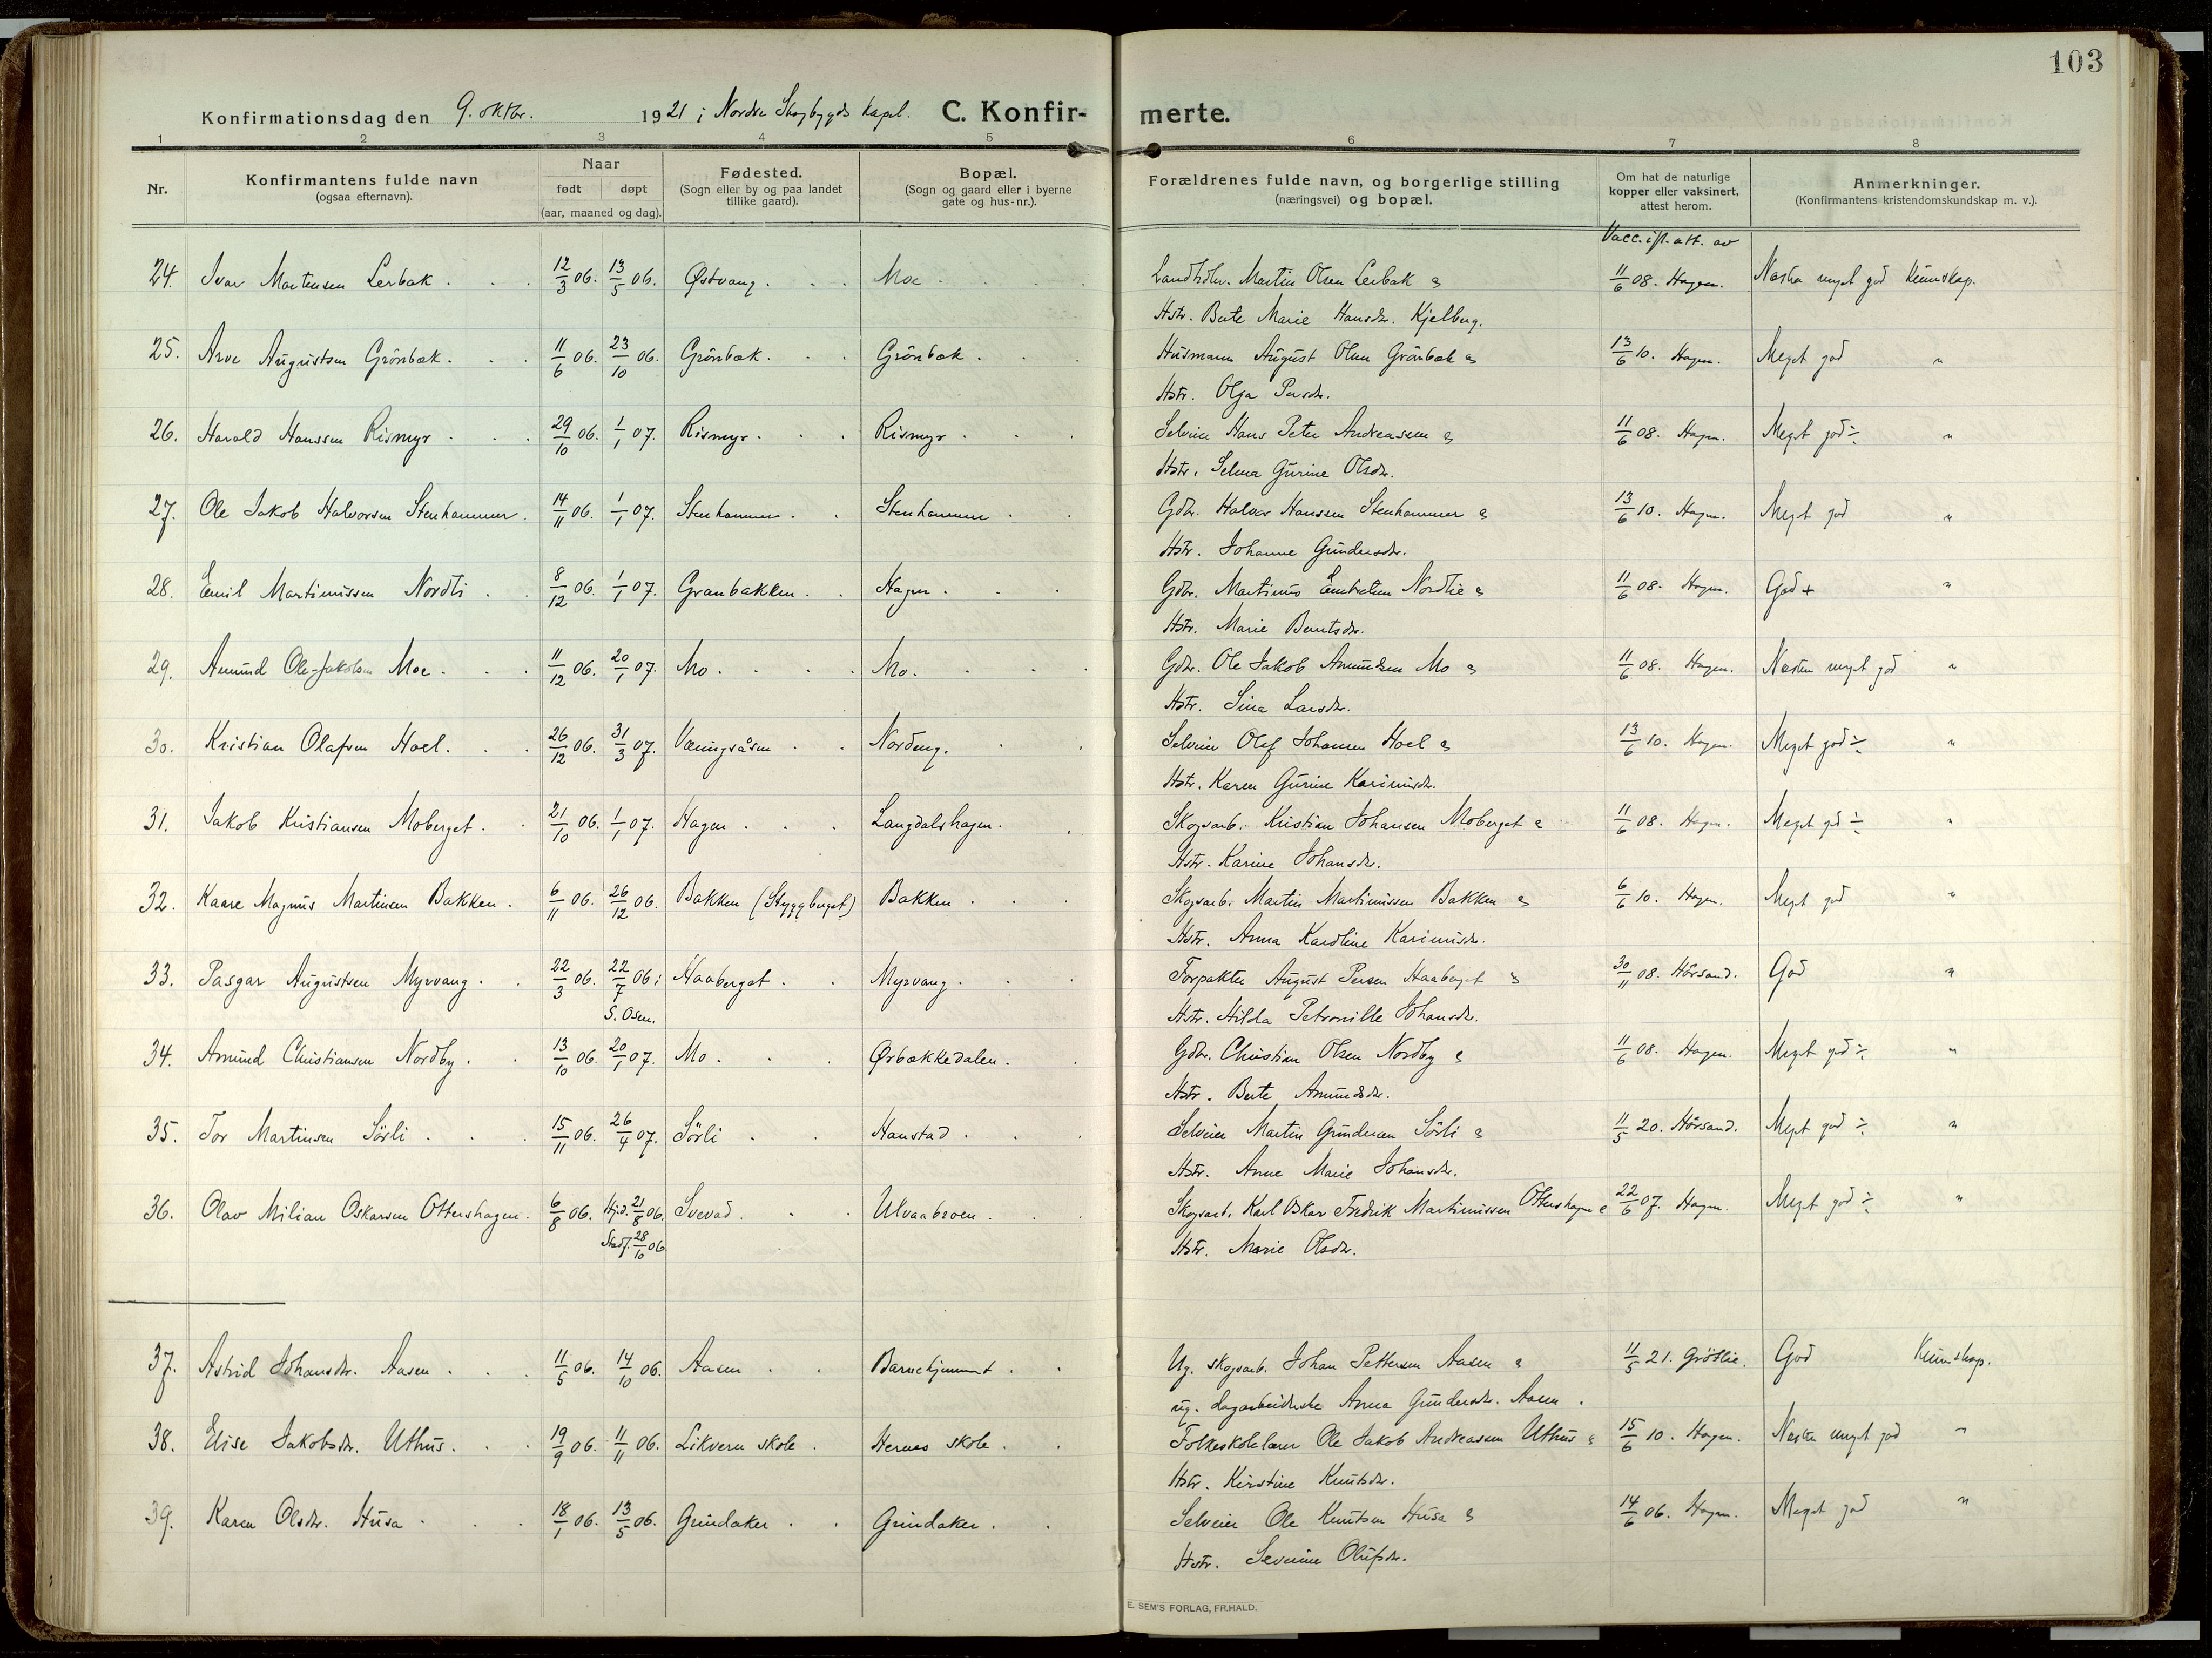 103
Konfirmationsdag den 9. oktbr. 1921 i Nordre Skogbygds kapel. C. Konfirmerte.
1 2 3 4 5 6 7 8
Nr. Konfirmantens fulde navn (ogsaa efternavn). Naar født døpt (aar, maaned og dag). Fødested. (Sogn eller by og paa landet tillike gaard). Bopæl. (Sogn og gaard eller i byerne gate og hus-nr.). Forældrenes fulde navn, og borgerlige stilling (næringsvei) og bopæl. Om hat de naturlige kopper eller vaksinert, attest herom. Anmerkninger. (Konfirmantens kristendomskundskap m. v.).
Vacc. ifl. att. av
24. Ivar Martensen Lerbak . . . 12/3 06. 13/5 06. Østvang . . . Moe . . . . Landhdlr. Martin Olsen Lerbak & 11/6 08. Hagen. Næsten meget god Kunnskap.
Hstr. Berte Marie Hansdr. Kjelberg.
25. Arve Augustsen Grönbæk . . . 11/6 06. 23/10 06. Grönbæk . . . Grönbæk . . . Husmann August Olsen Grönbæk & 13/6 10. Hagen. Meget god "
Hstr. Olga Persdr.
26. Harald Hanssen Rismyr . . . 29/10 06. 1/1 07. Rismyr . . . Rismyr . . . Selveier Hans Peter Andreassen & 11/6 08. Hagen. Meget god ÷ "
Hstr. Selma Gurine Olsdr.
27. Ole Jakob Halvorsen Stenhammer . 14/11 06. 1/1 07. Stenhammer . . Stenhammer . . Gdbr. Halvor Hanssen Stenhammer & 13/6 10. Hagen. Meget god "
Hstr. Johanne Gundersdr.
28. Emil Martinussen Nordli . . 8/12 06. 1/1 07. Granbakken . . Hagen . . . Gdbr. Martinus Embretsen Nordlie & 11/6 08. Hagen. God + "
Hstr. Marie Berntsdr.
29. Amund Ole-Jakobsen Moe . . . 11/12 06. 20/1 07. Mo . . . . Mo . . . . Gdbr. Ole Jakob Amundsen Mo & 11/6 08. Hagen. Næsten meget god "
Hstr. Sina Larsdr.
30. Kristian Olafsen Hoel . . . 26/12 06. 31/3 07. Væringsåsen . . Nordeng . . . Selveier Olaf Johansen Hoel & 13/6 10. Hagen. Meget god ÷ "
Hstr. Karen Gurine Karinusdr.
31. Jakob Kristiansen Moberget . . 21/10 06. 1/1 07. Hagen . . . Langdalshagen . . Skogsarb. Kristian Johansen Moberget & 11/6 08. Hagen. Meget god ÷ "
Hstr. Karine Johansdr.
32. Kaare Magnus Martinsen Bakken . 6/11 06. 26/12 06. Bakken (Styggberget) Bakken . . . Skogsarb. Martin Martinussen Bakken & 6/6 10. Hagen. Meget god "
Hstr. Anna Karoline Karinusdr.
33. Pasgar Augustsen Myrvang . . 22/3 06. 22/7 06 i S. Osen. Haaberget . . Myrvang . . . Forpakter August Persen Haaberget & 30/11 08. Hörsand. God "
Hstr. Hilda Petronille Johansdr.
34. Amund Christiansen Nordby . . 13/10 06. 20/1 07. Mo . . . Ørbækkedalen . . Gdbr. Christian Olsen Nordby & 11/6 08. Hagen. Meget god ÷ "
Hstr. Berte Amundsdr.
35. Tor Martinsen Sörli . . . 15/11 06. 26/4 07. Sörli . . . Hanstad . . . Selveier Martin Gundersen Sörli & 11/5 20. Hörsand. Meget god ÷ "
Hstr. Anne Marie Johansdr.
36. Olav Milian Oskarsen Ottershagen . 6/8 06. Hjd. 21/8 06. Stadf. 28/10 06. Svevad . . . Ulvaabroen . . Skogsarb. Karl Oskar Fredrik Martinussen Ottershagen & 22/6 07. Hagen. Meget god ÷ "
Hstr. Marie Olsdr.
37. Astrid Johansdr. Aasen . . . 11/5 06. 14/10 06. Aasen . . Barnehjemmet . . Ug. skogsarb. Johan Pettersen Aasen & 11/5 21. Grötlie. God Kunnskap.
ug. dagarbeiderske Anna Gundersdr. Aasen .
38. Elise Jakobsdr. Uthus . . . 19/9 06. 11/11 06. Likvern skole . Hernes skole . . Folkeskolelærer Ole Jakob Andreassen Uthus & 15/6 10. Hagen. Næsten meget god "
Hstr. Kirstine Knutsdr.
39. Karen Olsdr. Husa . . . 18/1 06. 13/5 06. Grindaker . . Grindaker . . Selveier Ole Knutsen Husa & 14/6 06. Hagen. Meget god "
Hstr. Severine Olufsdr.
E. SEM'S FORLAG, FR.HALD.